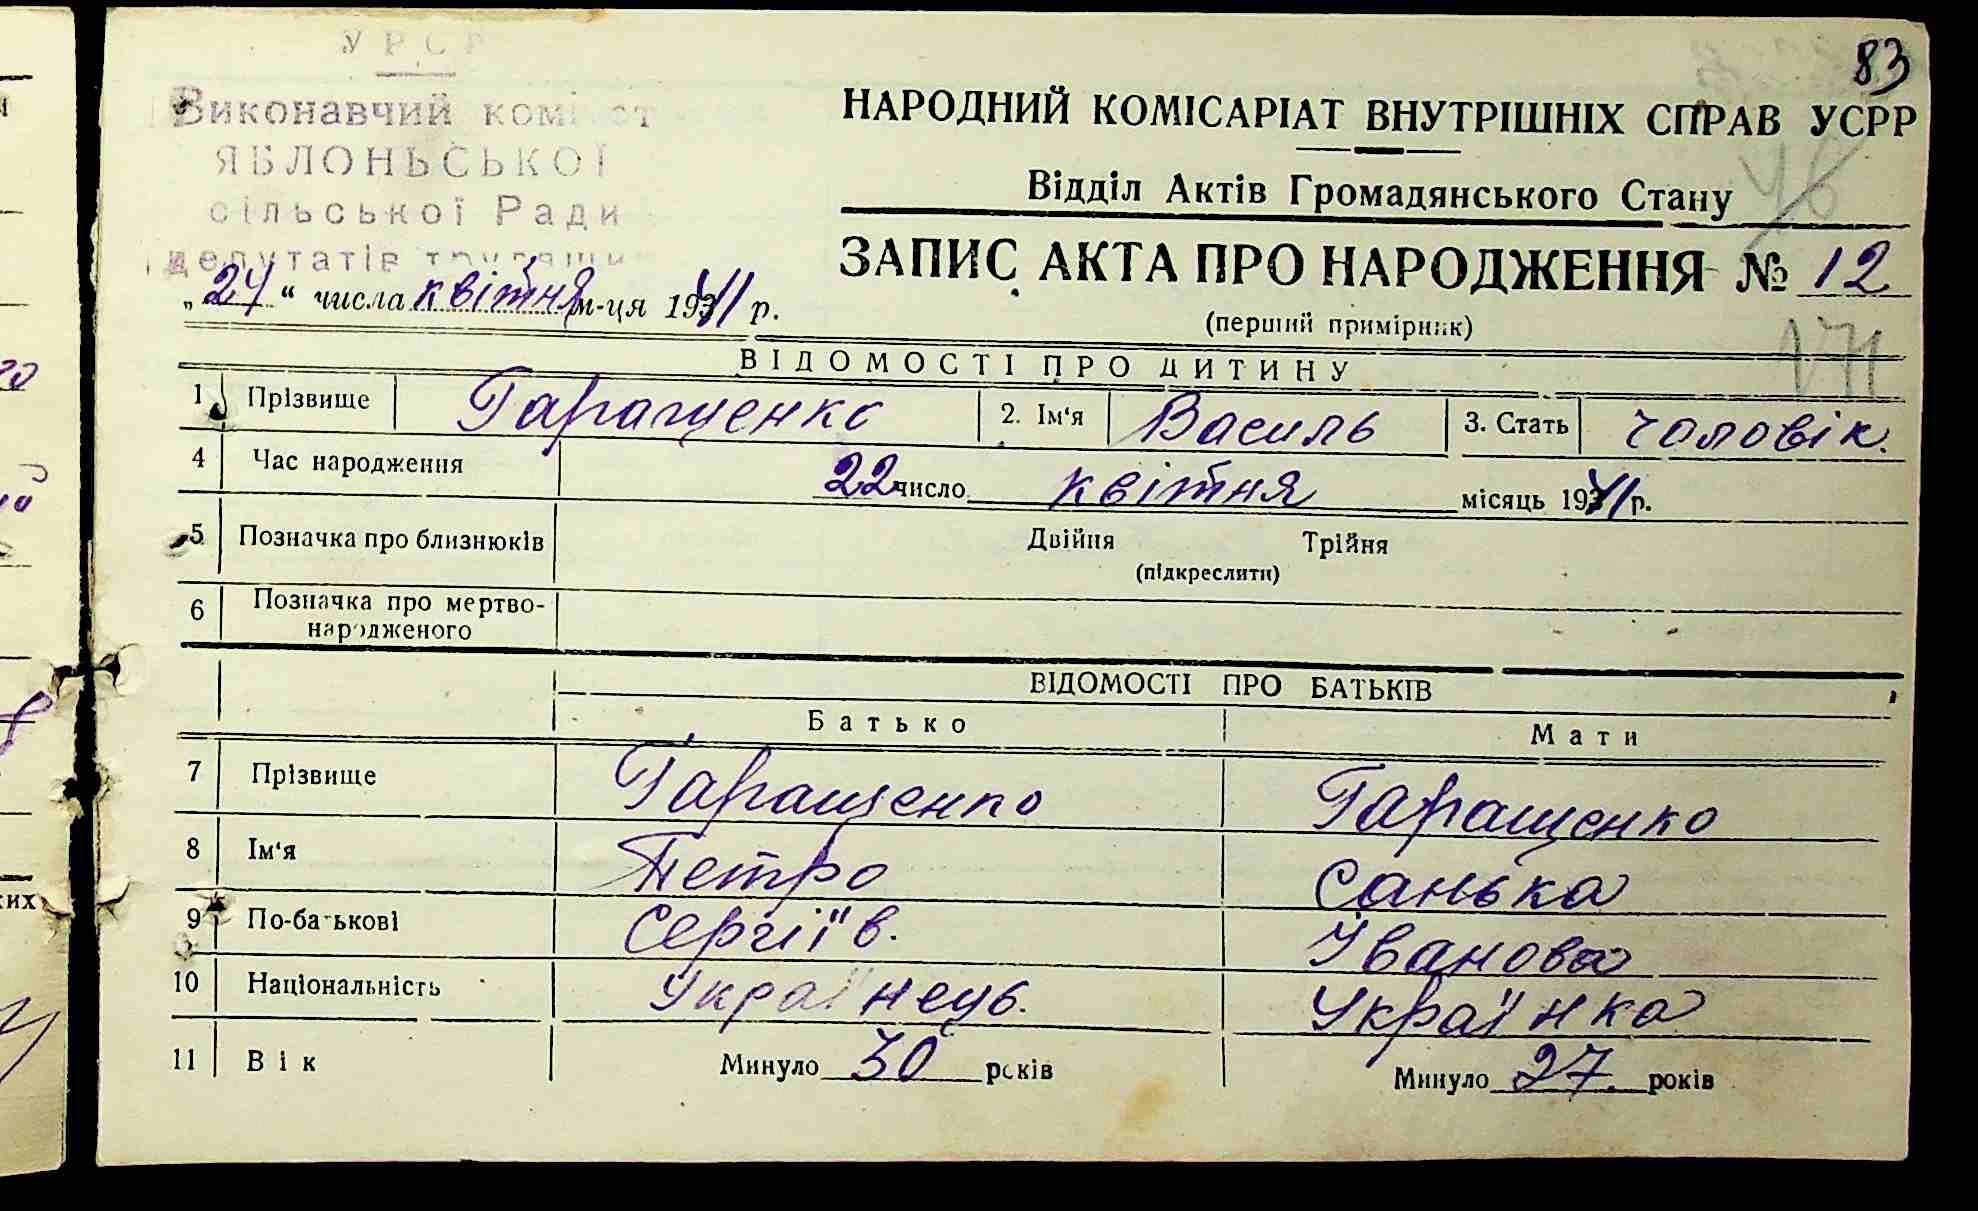 УРСР
Виконавчий комітет
ЯБЛОНЬСЬКОЇ
сільської Ради
депутатів трудящих
„24“ числа квітня м-ця 1941 р.
83
НАРОДНИЙ КОМІСАРІАТ ВНУТРІШНІХ СПРАВ УСРР
Відділ Актів Громадянського Стану
ЗАПИС АКТА ПРО НАРОДЖЕННЯ № 12
(перший примірник)
171
ВІДОМОСТІ ПРО ДИТИНУ
1 Прізвище Гаращенко 2. Ім‘я Василь 3. Стать чоловік.
4 Час народження 22 число квітня місяць 1941 р.
5 Позначка про близнюків Двійня Трійня
(підкреслити)
6 Позначка про мертво-
народженого
ВІДОМОСТІ ПРО БАТЬКІВ
Батько Мати
7 Прізвище Гаращенко Гаращенко
8 Ім‘я Петро Санька
9 По-батькові Сергіїв. Іванова
10 Національність Українець. Українка
11 Вік Минуло 30 років Минуло 27. років
ких